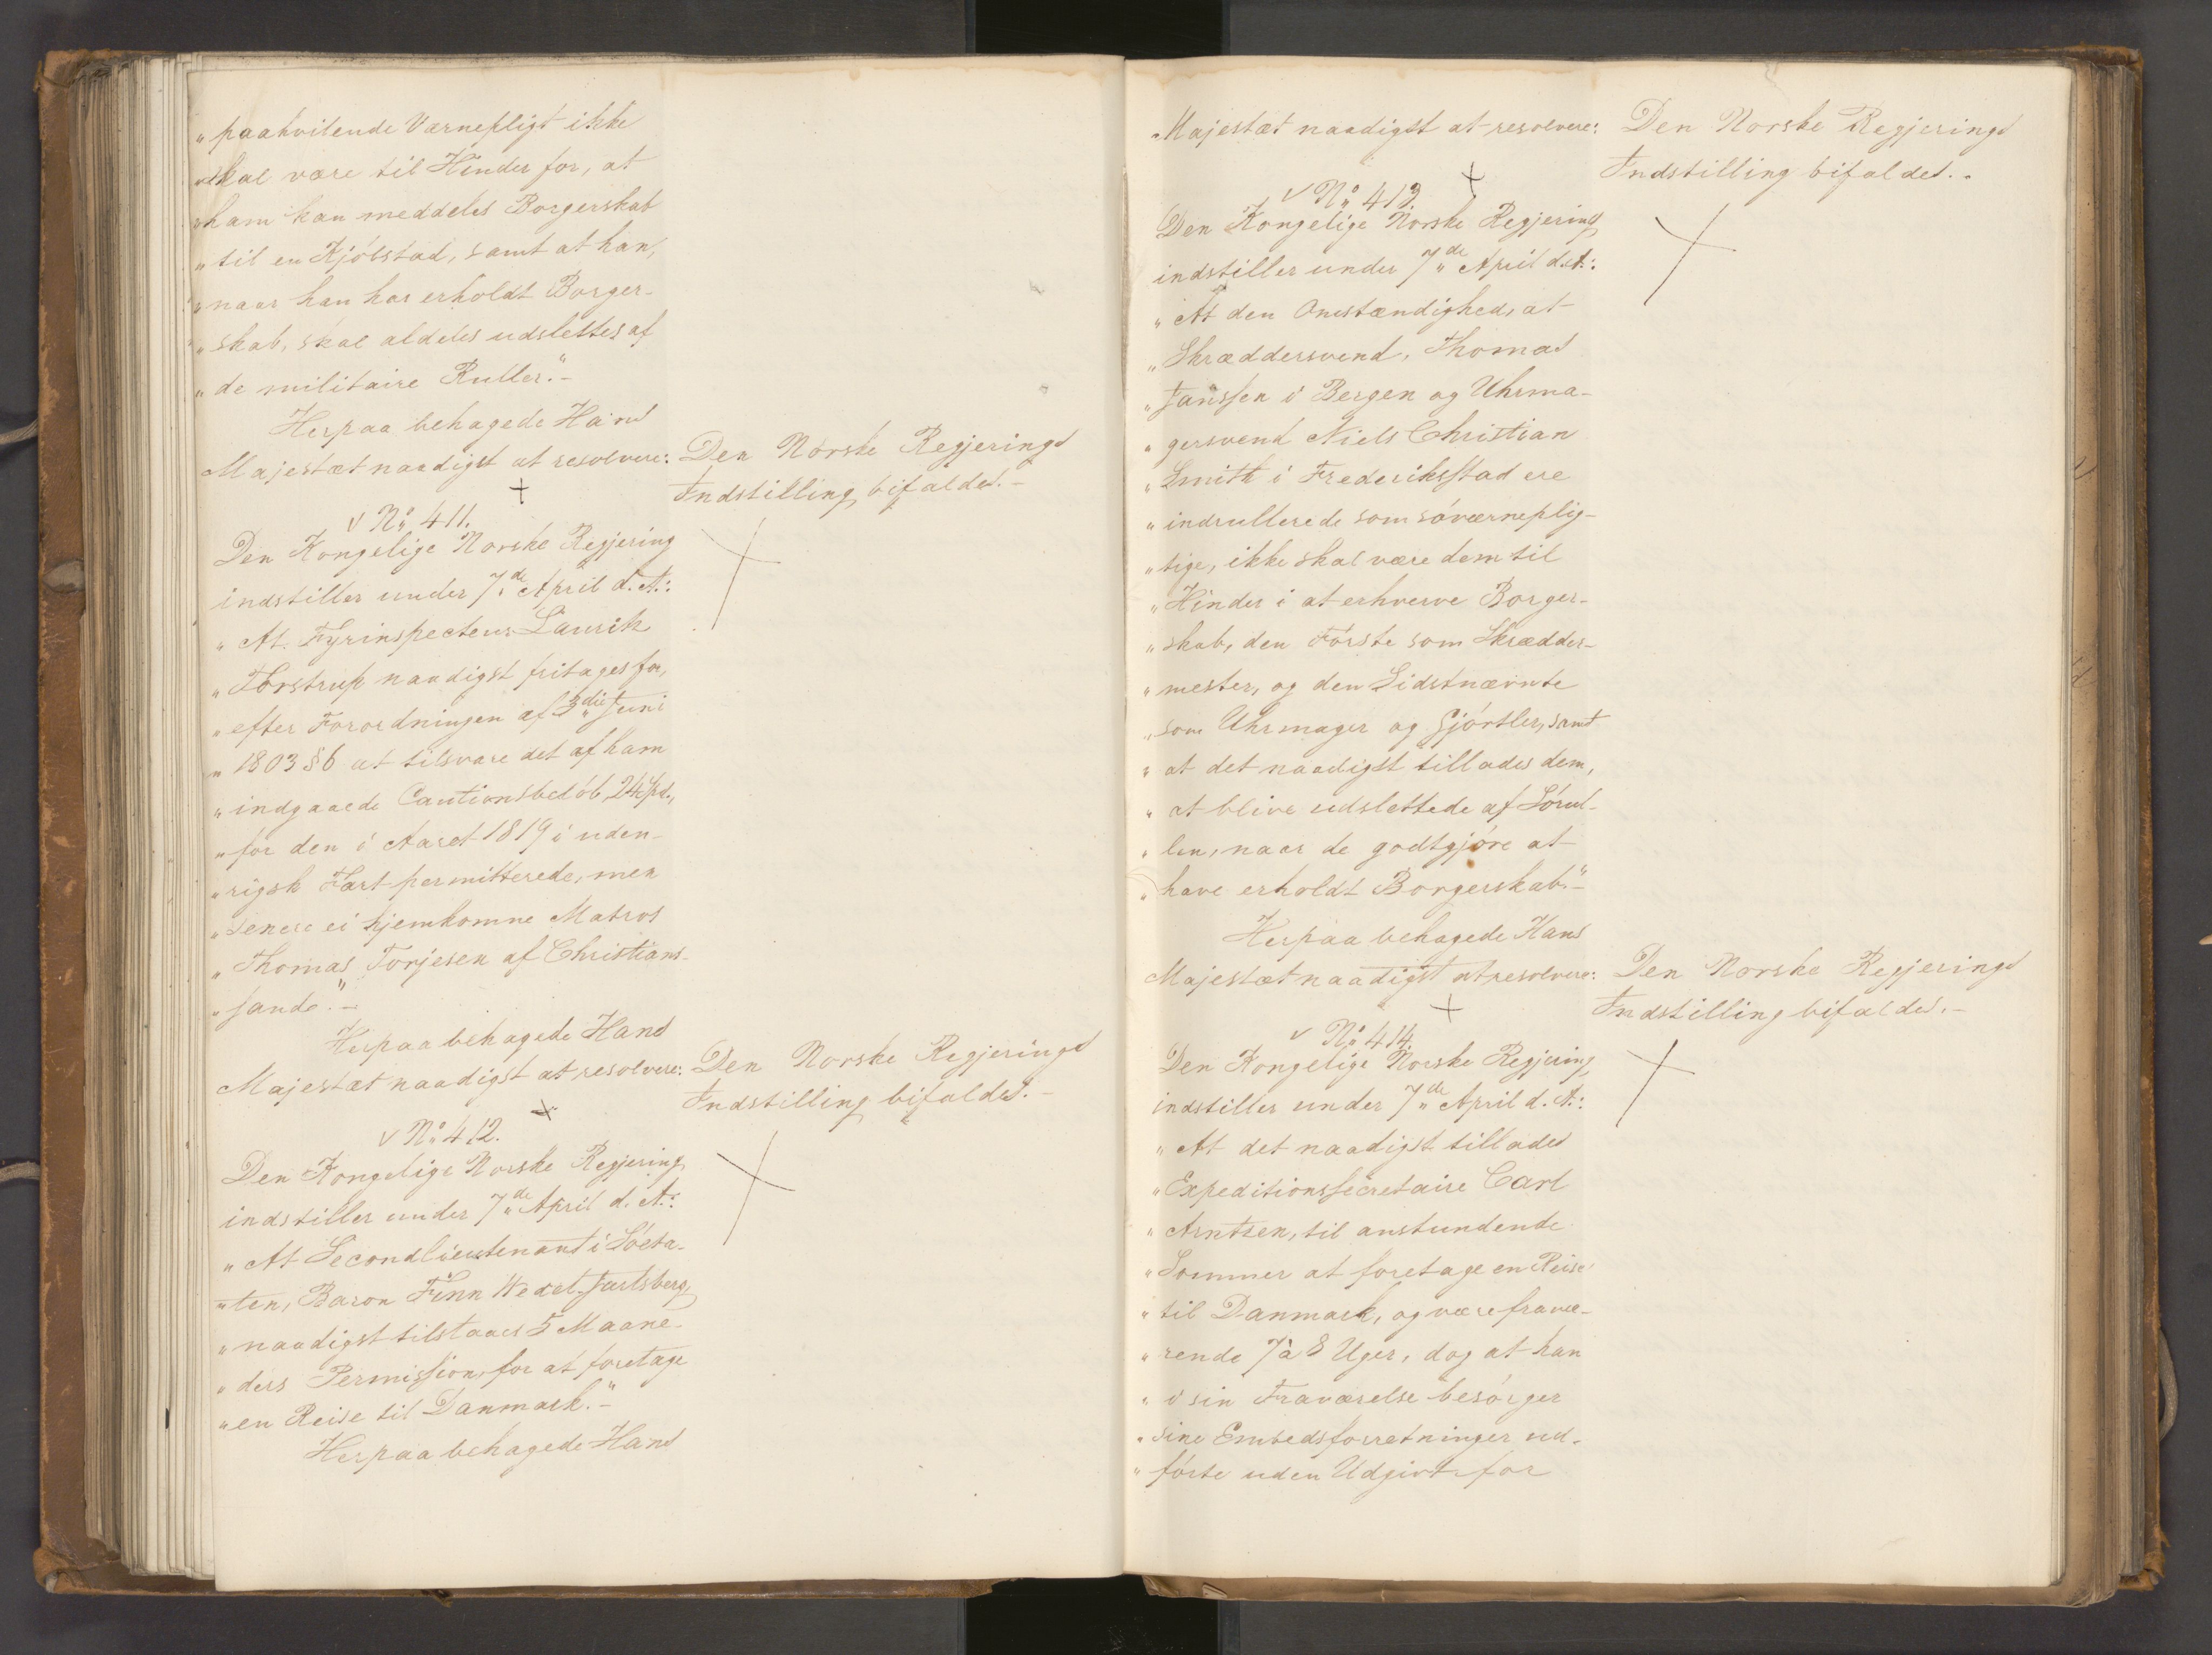 „paahvilende Værnepligt ikke
„skal være til Hinder for, at
„ham kan meddeles Borgerskab
„til en Kjöbstad, samt at han,
„naar han har erholdt Borger-
„skab, skal aldeles udslettes af
„de militaire Ruller."-
Herpaa behagede Hans
Majestæt naadigst at resolvere:
Den Norske Regjerings
Indstilling bifaldes.-
No 411.
Den Kongelige Norske Regjering
indstiller under 7de April d. A.:
„At Fyrinspecteur Laurik
„Torstrup naadigst fritages for,
„efter Forordningen af 3die Juni
„1803 § 6 at tilsvare det af ham
„indgaaede Cautionsbelöb, 24 Spd.,
„for den i Aaret 1819 i uden-
„rigsk Fart permitterede, men
„senere ei hjemkomne Matros
„Thomas Torjesen af Christians-
„sand."-
Herpaa behagede Hans
Majestæt naadigst at resolvere:
Den Norske Regjerings
Indstilling bifaldes.-
No 412.
Den Kongelige Norske Regjering
indstiller under 7de April d. A.:
„At Secondlieutenant i Söeta-
„ten, Baron Finn Wedel-Jarlsberg
„naadigst tilstaaes 5 Maane-
„ders Permission, for at foretage
„en Reise til Danmark."-
Herpaa behagede Hans
Majestæt naadigst at resolvere:
Den Norske Regjerings
Indstilling bifaldes.-
No 413.
Den Kongelige Norske Regjering
indstiller under 7de April d. A.:
„At den Omstændighed, at
„Skræddersvend, Thomas
„Janssen i Bergen og Uhrma-
„gersvend Niels Christian
„Smith i Frederiksstad ere
„indrullerede som söværneplig-
„tige, ikke skal være dem til
„Hinder i at erhverve Borger-
„skab, den Förste som Skrædder-
„mester, og den Sidstnævnte
„som Uhrmager og Gjörtler, samt
„at det naadigst tillades dem,
„at blive udslettede af Sörul-
„len, naar de godtgjöre at
„have erholdt Borgerskab."-
Herpaa behagede Hans
Majestæt naadigst at resolvere:
Den Norske Regjerings
Indstilling bifaldes.-
No 414.
Den Kongelige Norske Regjering
indstiller under 7de April d. A.:
„At det naadigst tillades
„Expeditionssecretaire Carl
„Arntzen, til anstundende
„Sommer at foretage en Reise
„til Danmark, og være fravæ-
„rende 7 à 8 Uger, dog at han
„i sin Fraværelse besörger
„sine Embedsforretninger ud-
„förte uden Udgivt for